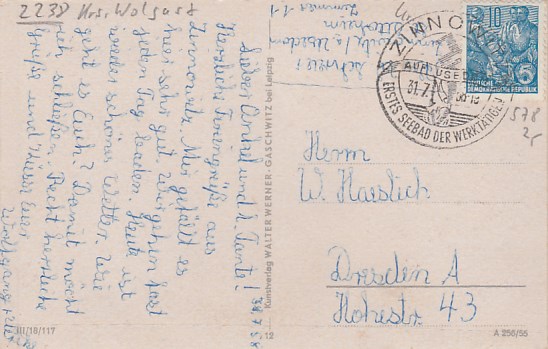 2238 Krs. Wolgast
Lieber Onkel und l. Tante!
Herzliche Feriengrüße aus
Zinnowitz. Mir gefällt es
hier sehr gut. Wir gehen fast
jeden Tag baden. Heute ist
wieder schönes Wetter. Wie
geht es Euch? Damit möcht
ich schließen. Recht herzliche
Grüße und Küsse Euer
Wolfgang
Kunstverlag WALTER WERNER · GASCHWITZ bei Leipzig
III/18/117
12
ZINNOWITZ
AUF USEDOM
31.7.
ERSTES SEEBAD DER WERKTÄTIGEN
10
DEUTSCHE
DEMOKRATISCHE REPUBLIK
1578
Herrn
W. Haeslich
Dresden A
Hohestr. 43
A 256/55